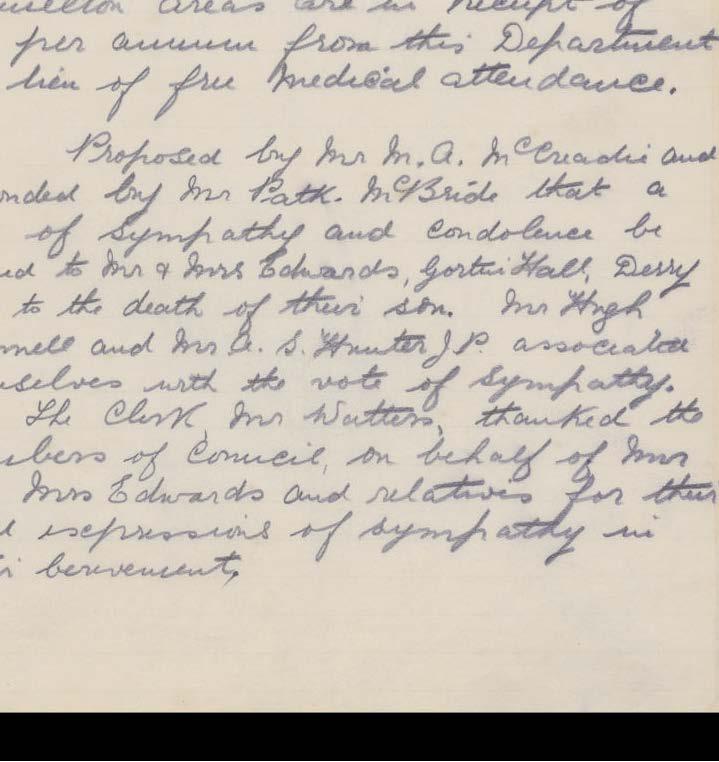 areas are in receipt of
per annum from this Department
lieu of free medical attendance.
Proposed by Mr M. A. McCreadie and
onded by Mr Patk. McBride that a
of sympathy and condolence be
ed to Mr & Mrs Edwards, Gortin Hall, Derry
to the death of their son. Mr Hugh
nnell and Mr A. S. Hunter J.P. associated
mselves with the vote of sympathy.
The Clerk, Mr Watters, thanked the
mbers of Council, on behalf of Mr
Mrs Edwards and relatives for their
d expressions of sympathy in
ir berevement,